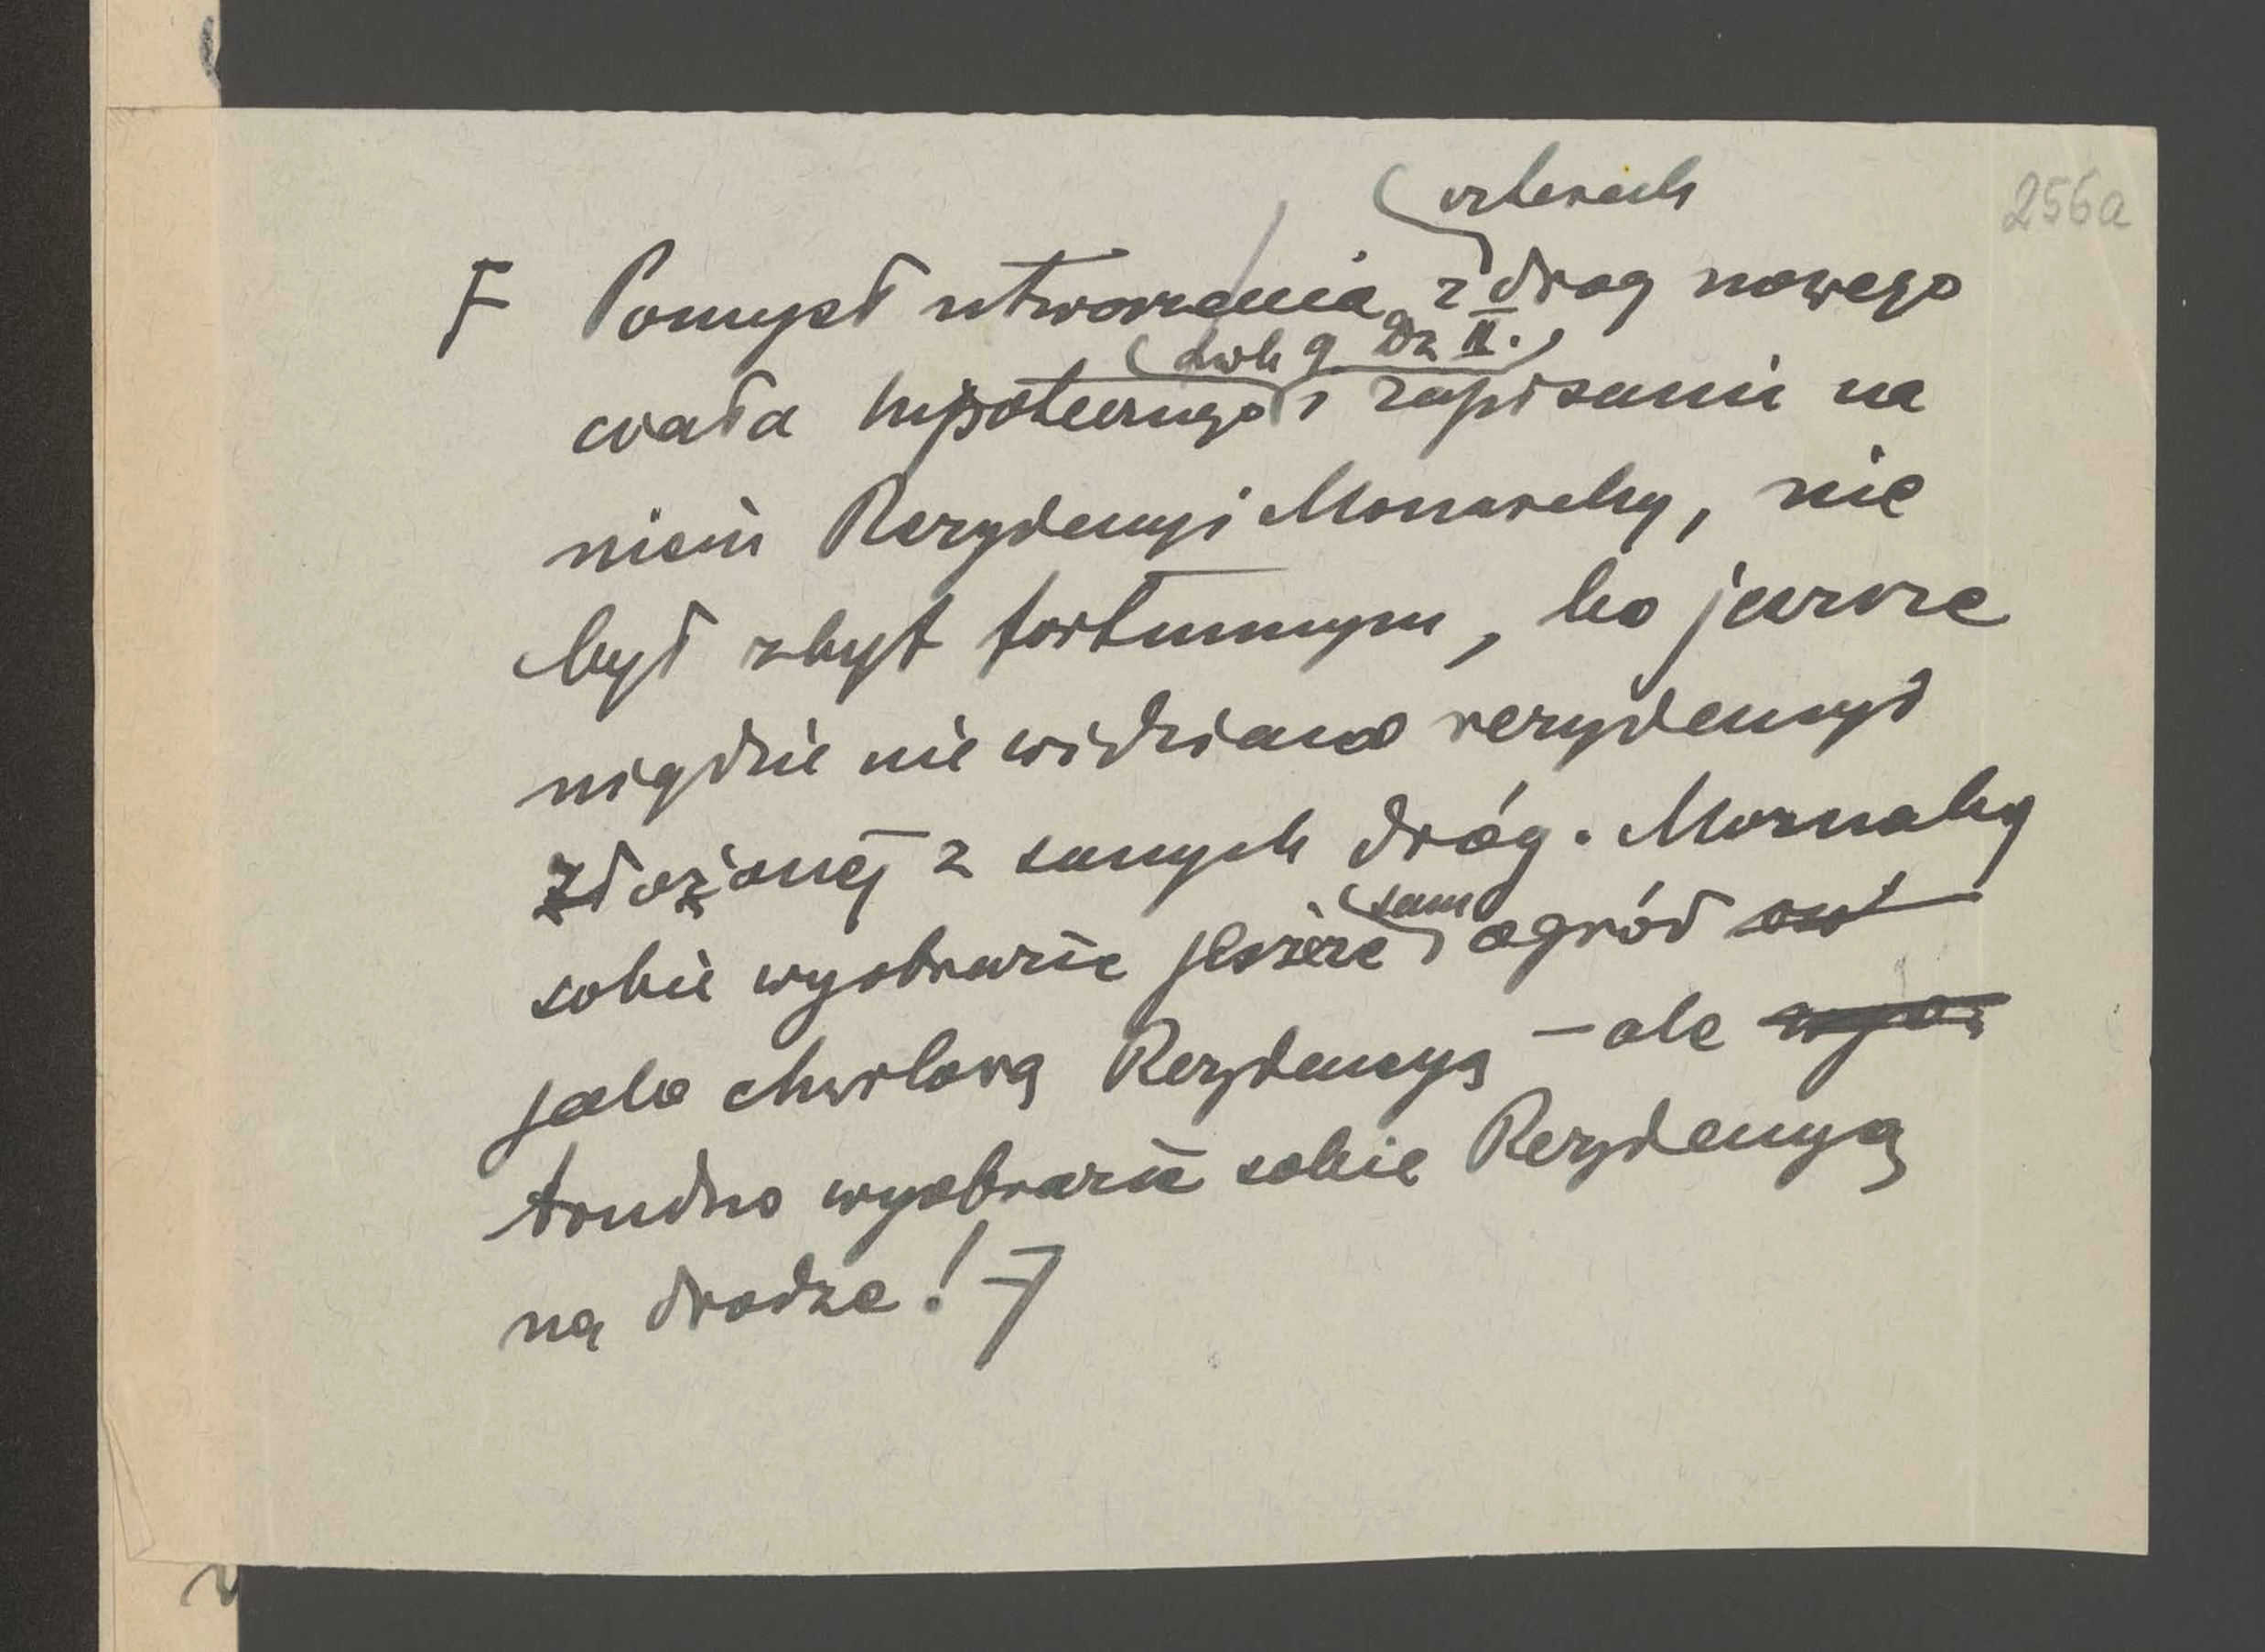 256a
czterech
F Pomysł utworzenia z drog nowego
Lwh 9 Dz II.
ciała hipotecznego i zapisaniu na
niem Rezydencyi Monarchy, nie
był zbyt fortunnym, bo jeszcze
nigdzie nie widziano rezydencyi
złożonej z samych dróg. Moznaby
sam
sobie wyobrazić jeszcze ogród
jako chwilową Rezydencyą — ale
trudno wyobrazić sobie Rezydencyą
na drodze! 7